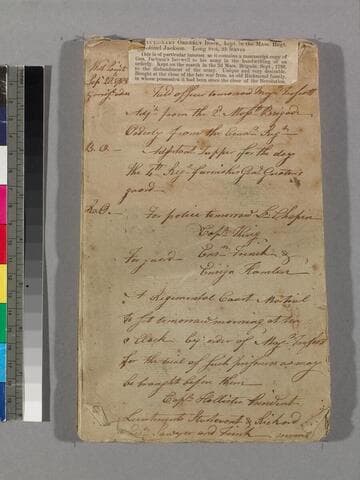 ORDERLY BOOK, kept in the Mass. Regt.
Jackson. Long 8vo, 29 leaves
This is of particular interest, as it contains a manuscript copy of
Gen. Jackson's farewell to his army in the handwriting of an
orderly. Kept on the march in the 3d Mass. Brigade, Sept., 1782,
to the disbandment of the army. Unique and very desirable.
Bought at the close of the late war from an old Richmond family,
in whose possession it had been since the close of the Revolution.
West Point
Field officer tomorrow Majr
Adjt from the 2d Brigade
Orderly from the Regt
B. O. Adjutant Tupper for the day
The 4th Regt furnishes Genl Quarters
guard
R. O. For police tomorrow Lt Chapin
Capt King
For guard Ensn French &
Ensign
A Regimental Court Martial
to sit tomorrow morning at ten
o Clock by order of Majr
for the trial of such prisoners as may
be brought before them
Capt Hollister President
Lieutenants Sturtevent & Rickard
Sawyer and members